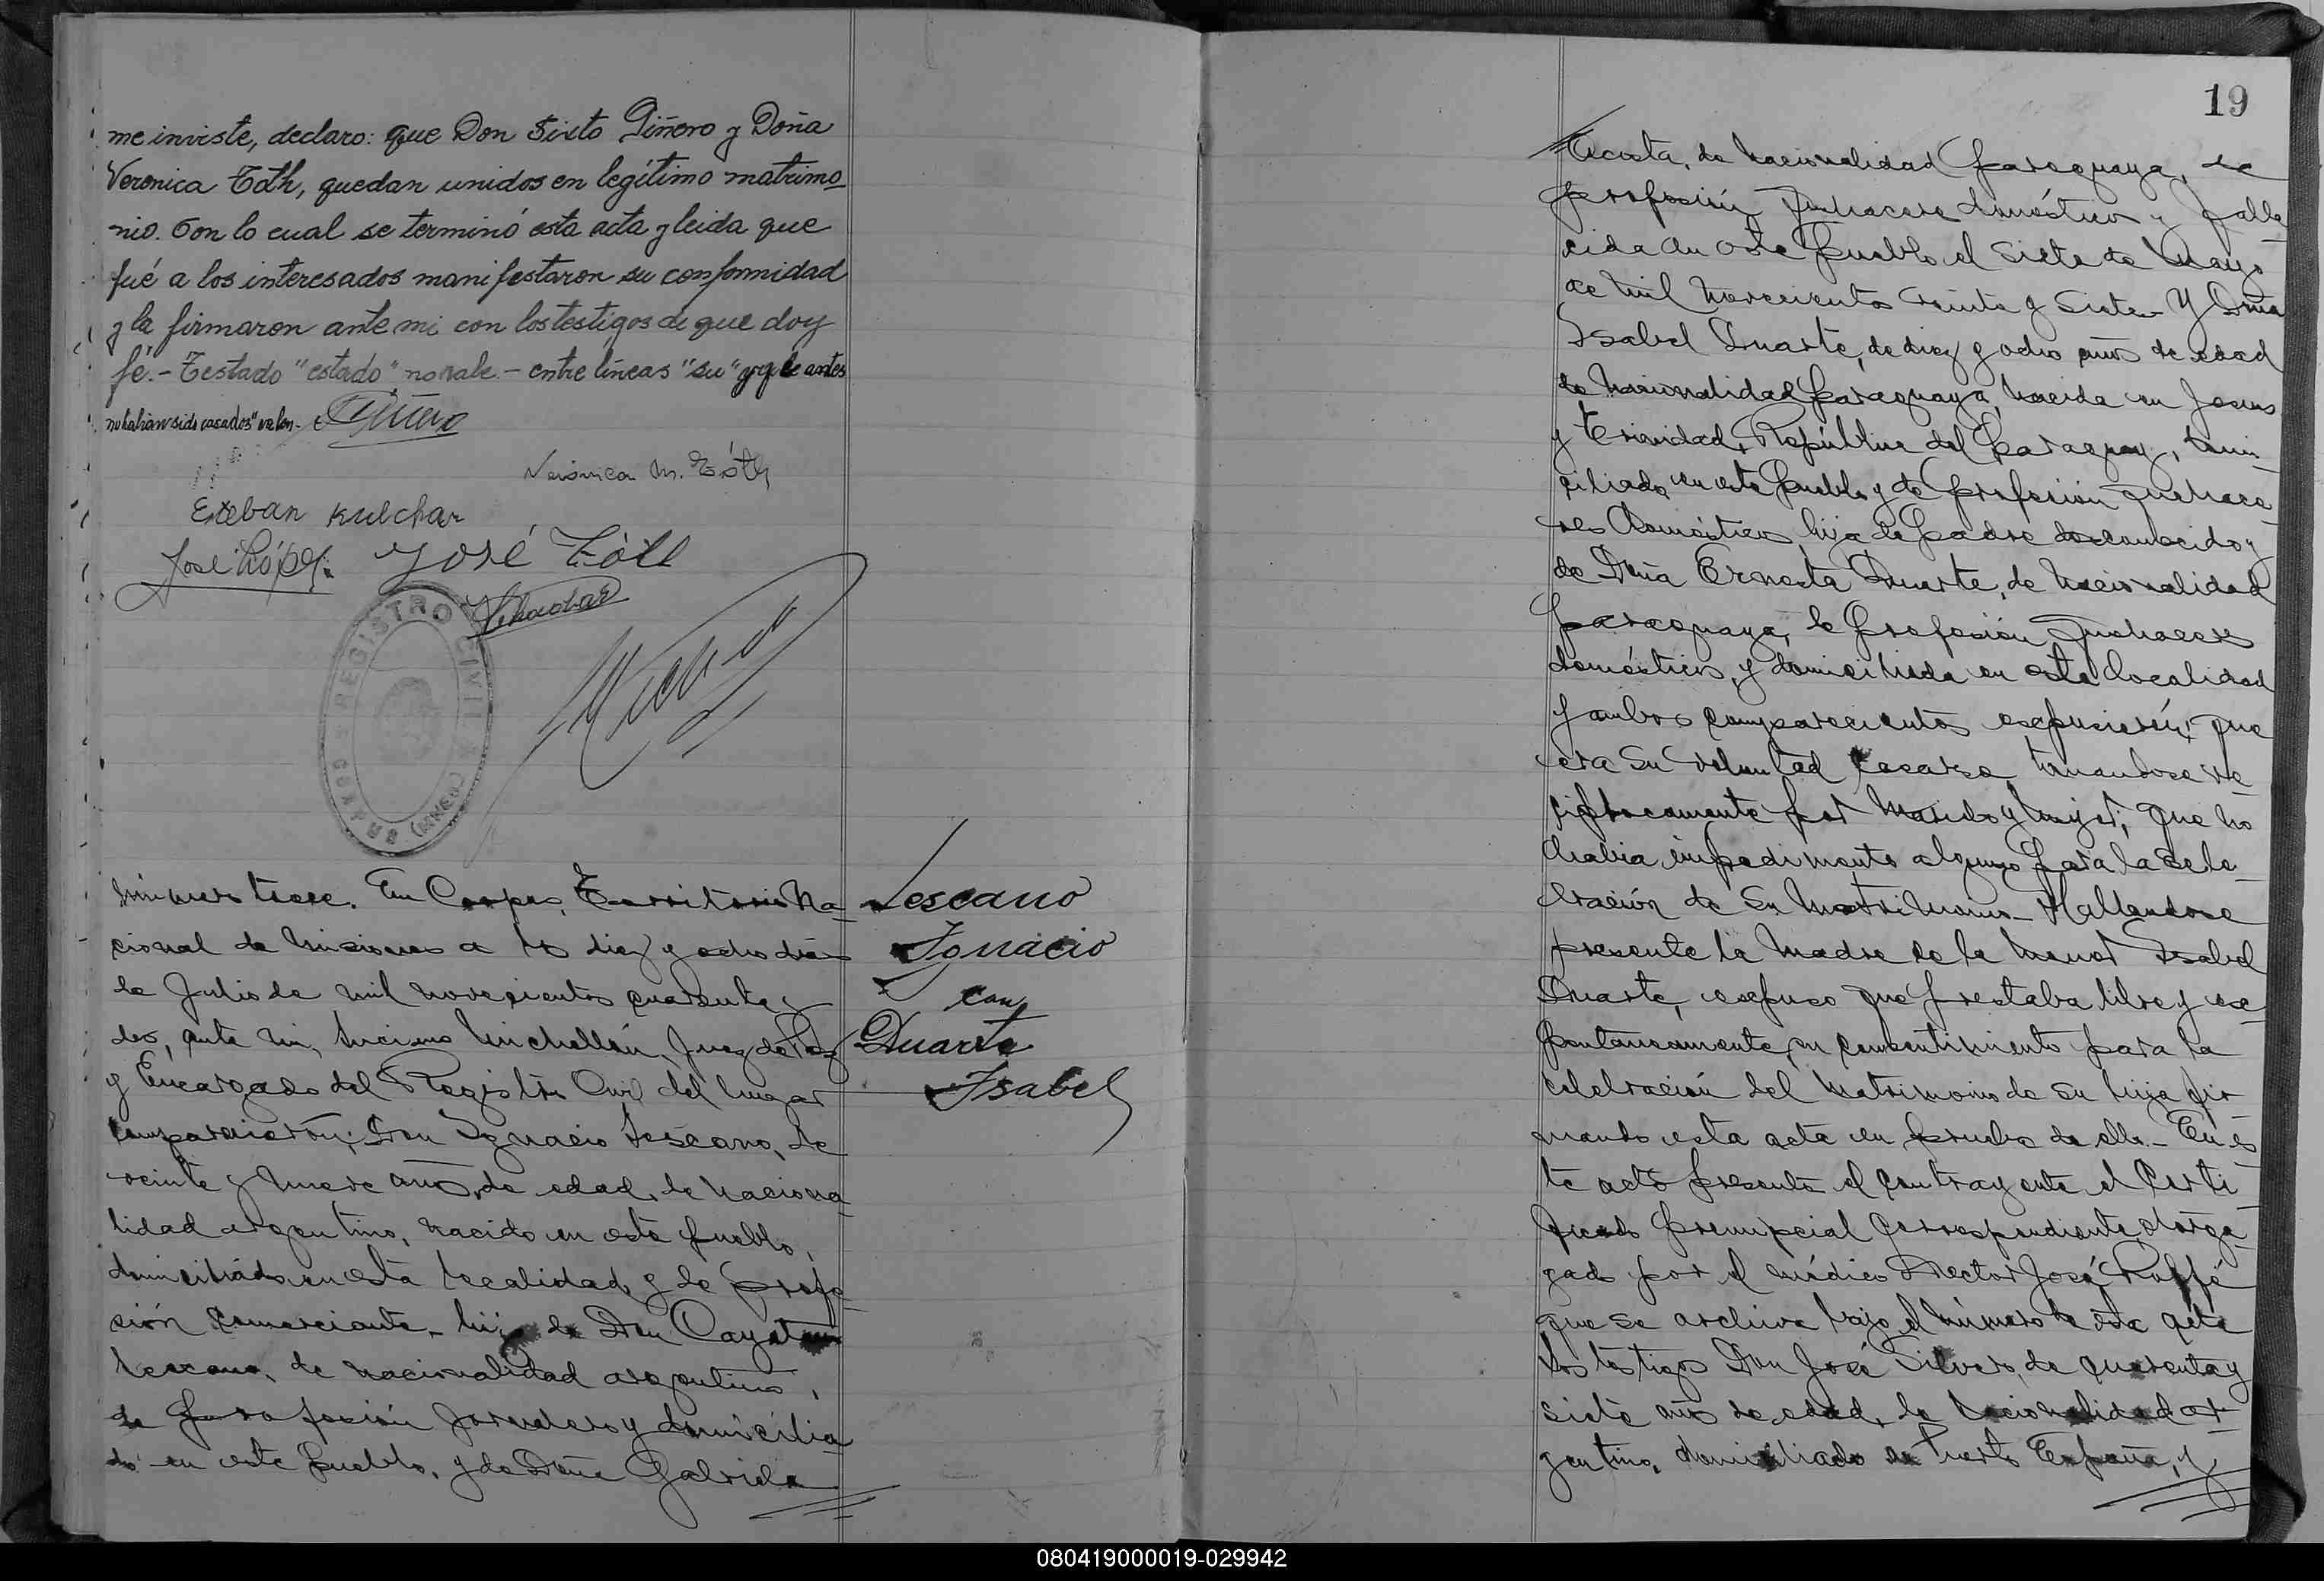 me inviste, declaro: que Don Sixto Piñero y Doña
Veronica Toth, quedan unidos en legítimo matrimo-
nio. Con lo cual se terminó esta acta y leida que
fué a los interesados manifestaron su conformidad
y la firmaron ante mi con los testigos de que doy
fé.- Testado "estado" no vale.- entre líneas "su" y que antes
no habian sido casados" valen.-
Veronica M. Tóth
Esteban Kulchar
José López
José Tóth
REGISTRO CIVIL
CORPUS (MNES.)
Número trece. En Corpus, Territorio Na-
cional de Misiones a los diez y ocho dias
de Julio de mil novecientos cuarenta y
dos, ante mi, Michellón, Juez de Paz
y Encargado del Registro Civil del lugar
comparecieron; Don Ignacio Lescano, de
veinte y nueve años, de edad, de naciona-
lidad argentino, nacido en este pueblo,
domiciliado en esta localidad y de profe-
sión comerciante- hijo de Don Cayetano
Lescano, de nacionalidad argentino,
de profesión jornalero y domicilia-
do en este pueblo, y de Doña Gabriela
Lescano
Ignacio
con
Duarte
Isabel
19
Acosta, de nacionalidad paraguaya, de
profesión quehaceres domésticos y falle-
cida en este pueblo el siete de Mayo
de mil novecientos treinta y siete- Y Doña
Isabel Duarte, de diez y ocho años de edad
de nacionalidad paraguaya, nacida en Jesus
y Trinidad, República del Paraguay, domi-
ciliada en este pueblo y de profesión quehace-
res domésticos, hija de padre desconocido y
de Doña Ernesta Duarte, de nacionalidad
paraguaya, de profesión quehaceres
domésticos, y domiciliada en esta localidad
y ambos comparecientes expusieron; que
era su voluntad casarse tomandose re-
ciprocamente por marido y mujer; que no
habia impedimento alguno para la cele-
bración de su matrimonio- Hallandose
presente la madre de la menor Isabel
Duarte, expuso que prestaba libre y es-
pontaneamente, su consentimiento para la
celebración del matrimonio de su hija fir-
mando esta acta en prueba de ello.- En es-
te acto presenta el contrayente el Certi-
ficado prenupcial correspondiente, otorga-
gado por el médico Doctor José Ruffé
que se archiva bajo el número de esta acta
los testigos Don José Silvero, de cuarenta y
siete años de edad, de nacionalidad ar-
gentino, domiciliado en Puerto España, y
080419000019-029942